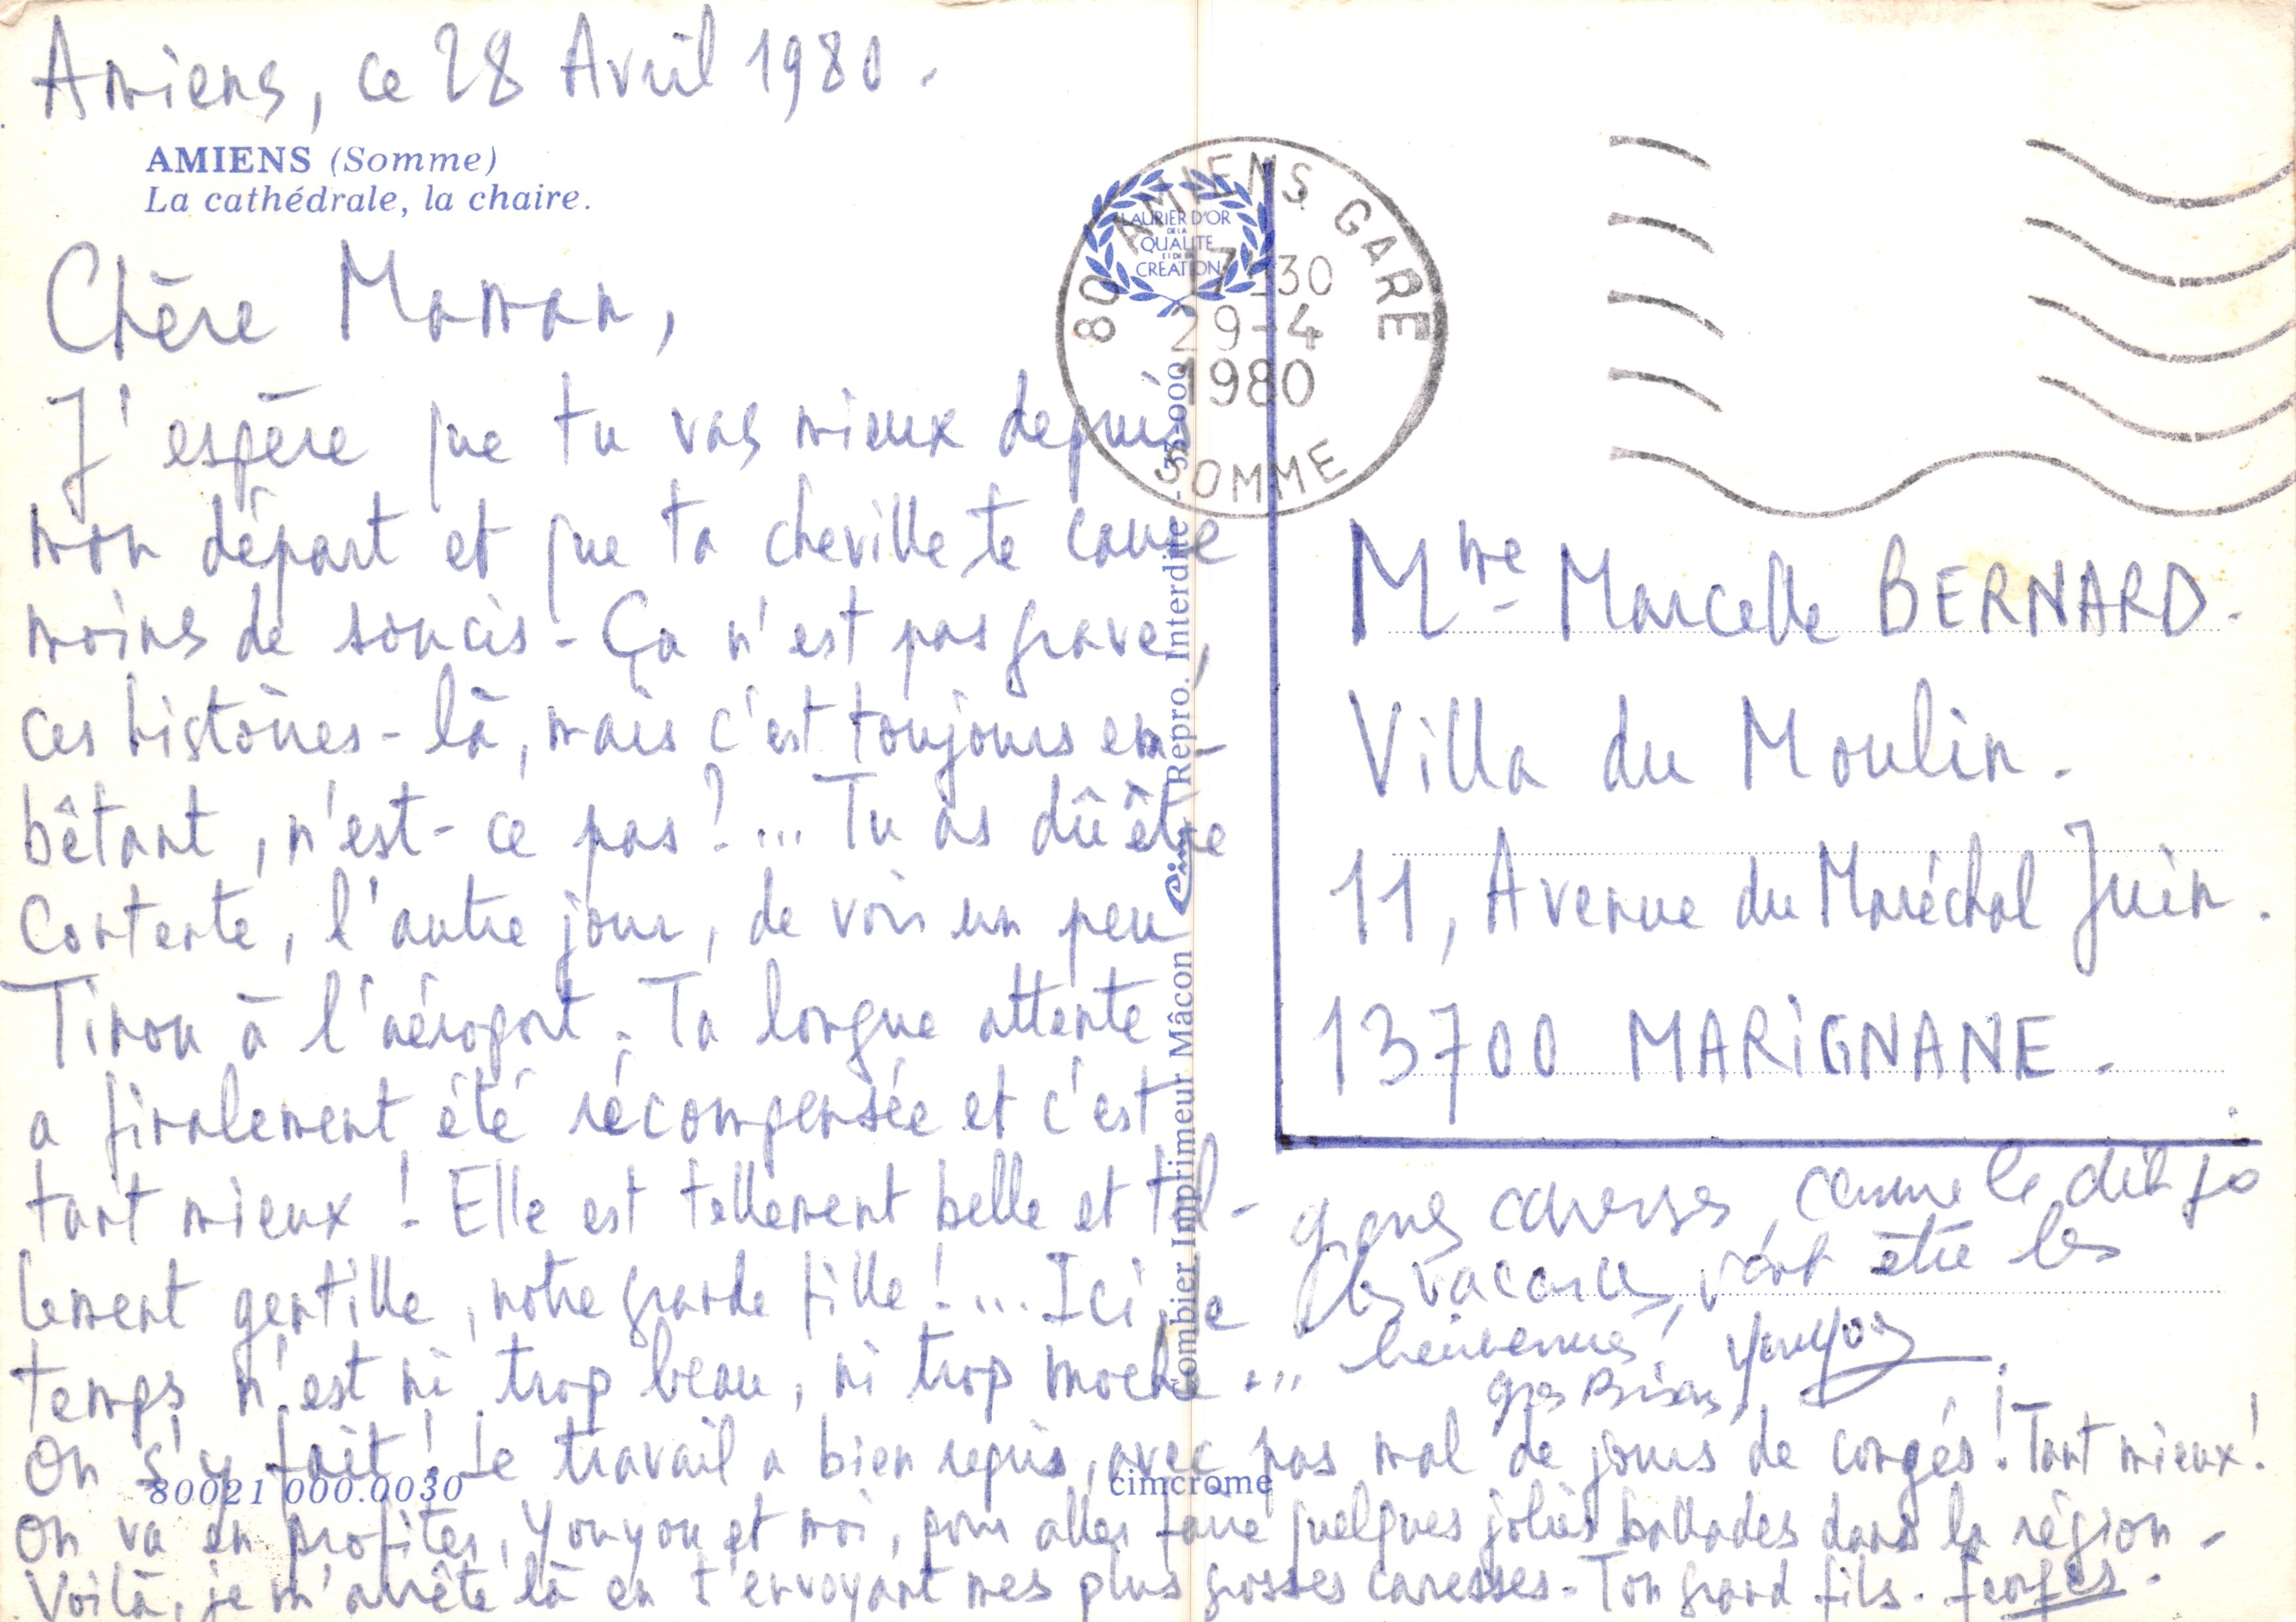 Amiens, ce 28 Avril 1980.
AMIENS (Somme)
La cathédrale, la chaire.
Chère Maman,
J'espère que tu vas mieux depuis
mon départ et que ta cheville te cause
moins de soucis - Ça n'est pas grave,
ces histoires-là, mais c'est toujours em-
bêtant, n'est-ce pas ?... Tu as dû être
contente, l'autre jour, de voir un peu
Tinou à l'aéroport. Ta longue attente
a finalement été récompensée et c'est
tant mieux ! Elle est tellement belle et tel-
lement gentille, notre grande fille !... Ici, le
temps n'est ni trop beau, ni trop moche...
On s'y fait ! Le travail a bien repris, avec pas mal de jours de congés ! Tant mieux !
On va en profiter, Youyou et moi, pour aller faire quelques jolies ballades dans la région -
Voilà, je m'arrête là en t'envoyant mes plus grosses caresses - Ton grand fils. Georges.
80021 000.0030
cimcrome
Combier Imprimeur Mâcon Cim Repro. Interdite - 33-000
LAURIER D'OR
DE LA
QUALITE
ET DE LA
CREATION
80 AMIENS GARE
17-30
29-4
1980
SOMME
Mme Marcelle BERNARD.
Villa du Moulin.
11, Avenue du Maréchal Juin.
13700 MARiGNANE.
caresses, comme le dit Jo
les vacances, vont être les
bienvenues ! Youyou
gros Bisous